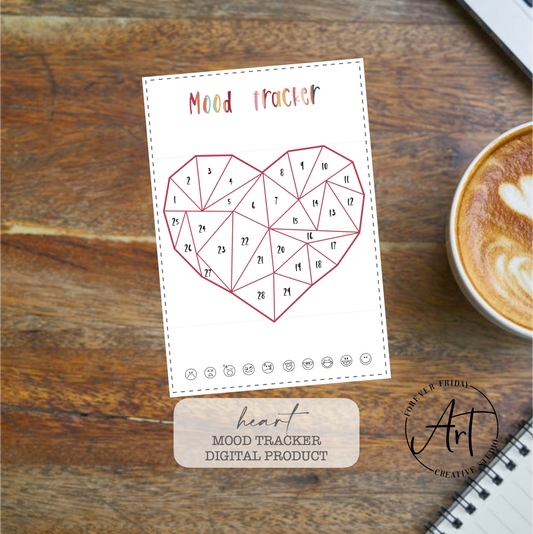 Mood tracker
3 8 9 10
2 4 11
1 5 6 7 14 12
25 15 13
24 16
26 23 22 20 17
27 21 19 18
28 29
heart
MOOD TRACKER
DIGITAL PRODUCT
FOREVER FRIDAY
Art
CREATIVE STUDIO